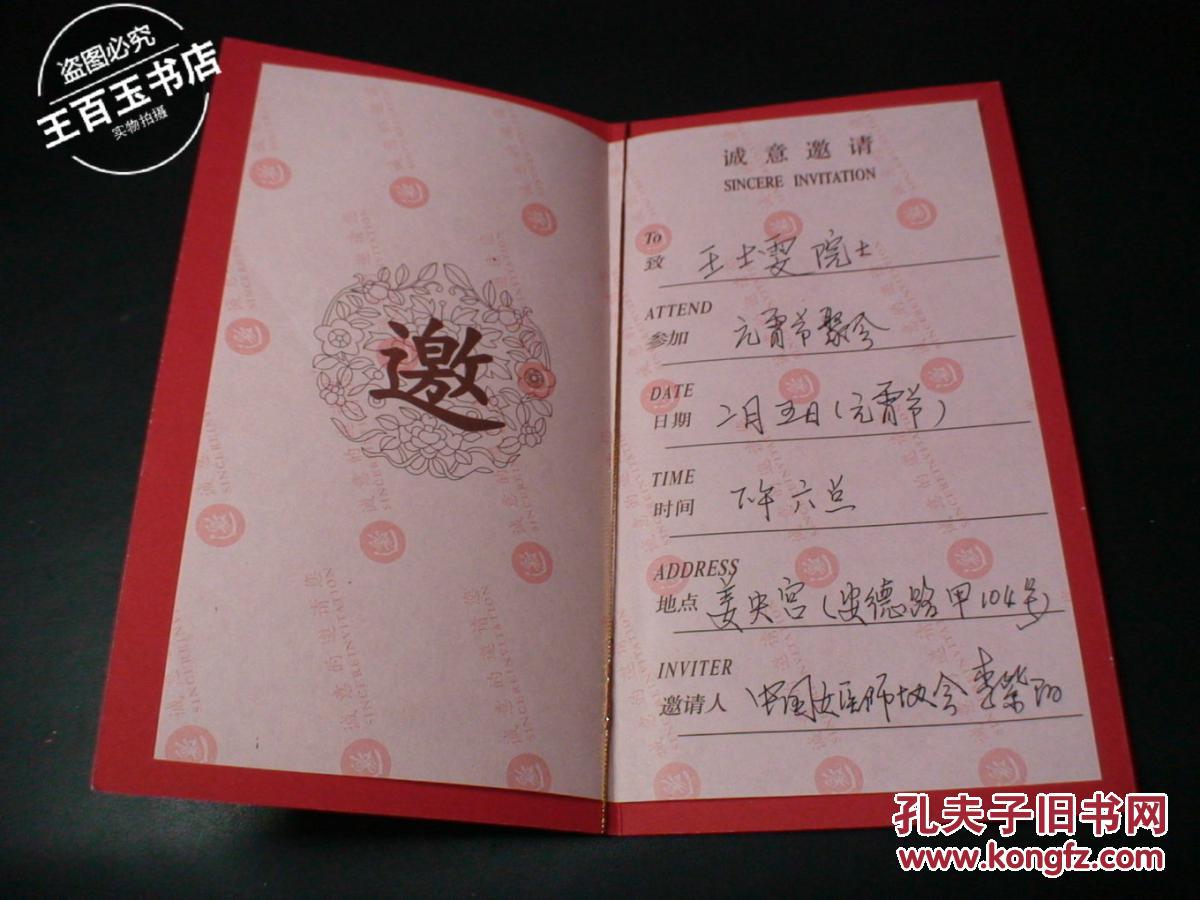 盗图必究
王百玉书店
实物拍摄
邀
诚意邀请
SINCERE INVITATION
To
致 王士雯院士
ATTEND
参加 元宵节聚会
DATE
日期 二月五日(元宵节)
TIME
时间 下午六点
ADDRESS
地点 姜央宫(安德路甲104号)
INVITER
邀请人 中国女医师协会 李
孔夫子旧书网
www.kongfz.com